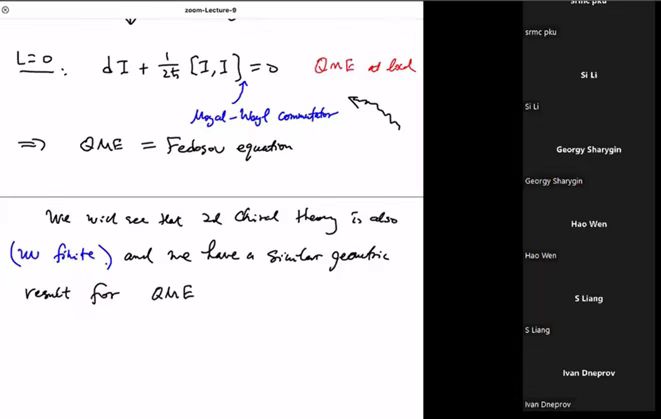 zoom-Lecture-9
L=0 : dI + 1/2ħ [I, I] = 0 QME at
Moyal-Weyl commutator
⇒ QME = Fedosov equation
We will see that 2d Chiral theory is also
(UV finite) and we have a similar geometric
result for QME
srmc pku
Si Li
Si Li
Georgy Sharygin
Georgy Sharygin
Hao Wen
Hao Wen
S Liang
S Liang
Ivan Dneprov
Ivan Dneprov